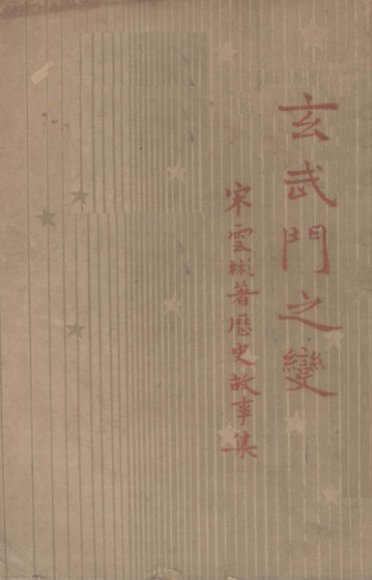 玄武門之變
宋雲彬著歷史故事集